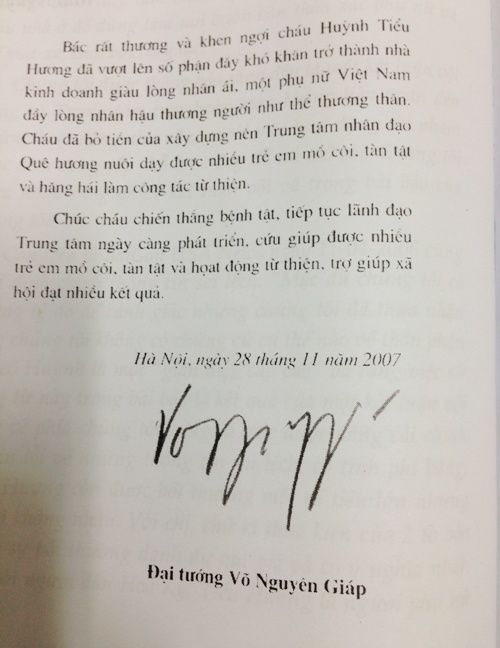 Bác rất thương và khen ngợi cháu Huỳnh Tiểu
Hương đã vượt lên số phận đầy khó khăn trở thành nhà
kinh doanh giàu lòng nhân ái, một phụ nữ Việt Nam
đầy lòng nhân hậu thương người như thể thương thân.
Cháu đã bỏ tiền của xây dựng nên Trung tâm nhân đạo
Quê hương nuôi dạy được nhiều trẻ em mồ côi, tàn tật
và hăng hái làm công tác từ thiện.
Chúc cháu chiến thắng bệnh tật, tiếp tục lãnh đạo
Trung tâm ngày càng phát triển, cứu giúp được nhiều
trẻ em mồ côi, tàn tật và hoạt động từ thiện, trợ giúp xã
hội đạt nhiều kết quả.
Hà Nội, ngày 28 tháng 11 năm 2007
Đại tướng Võ Nguyên Giáp